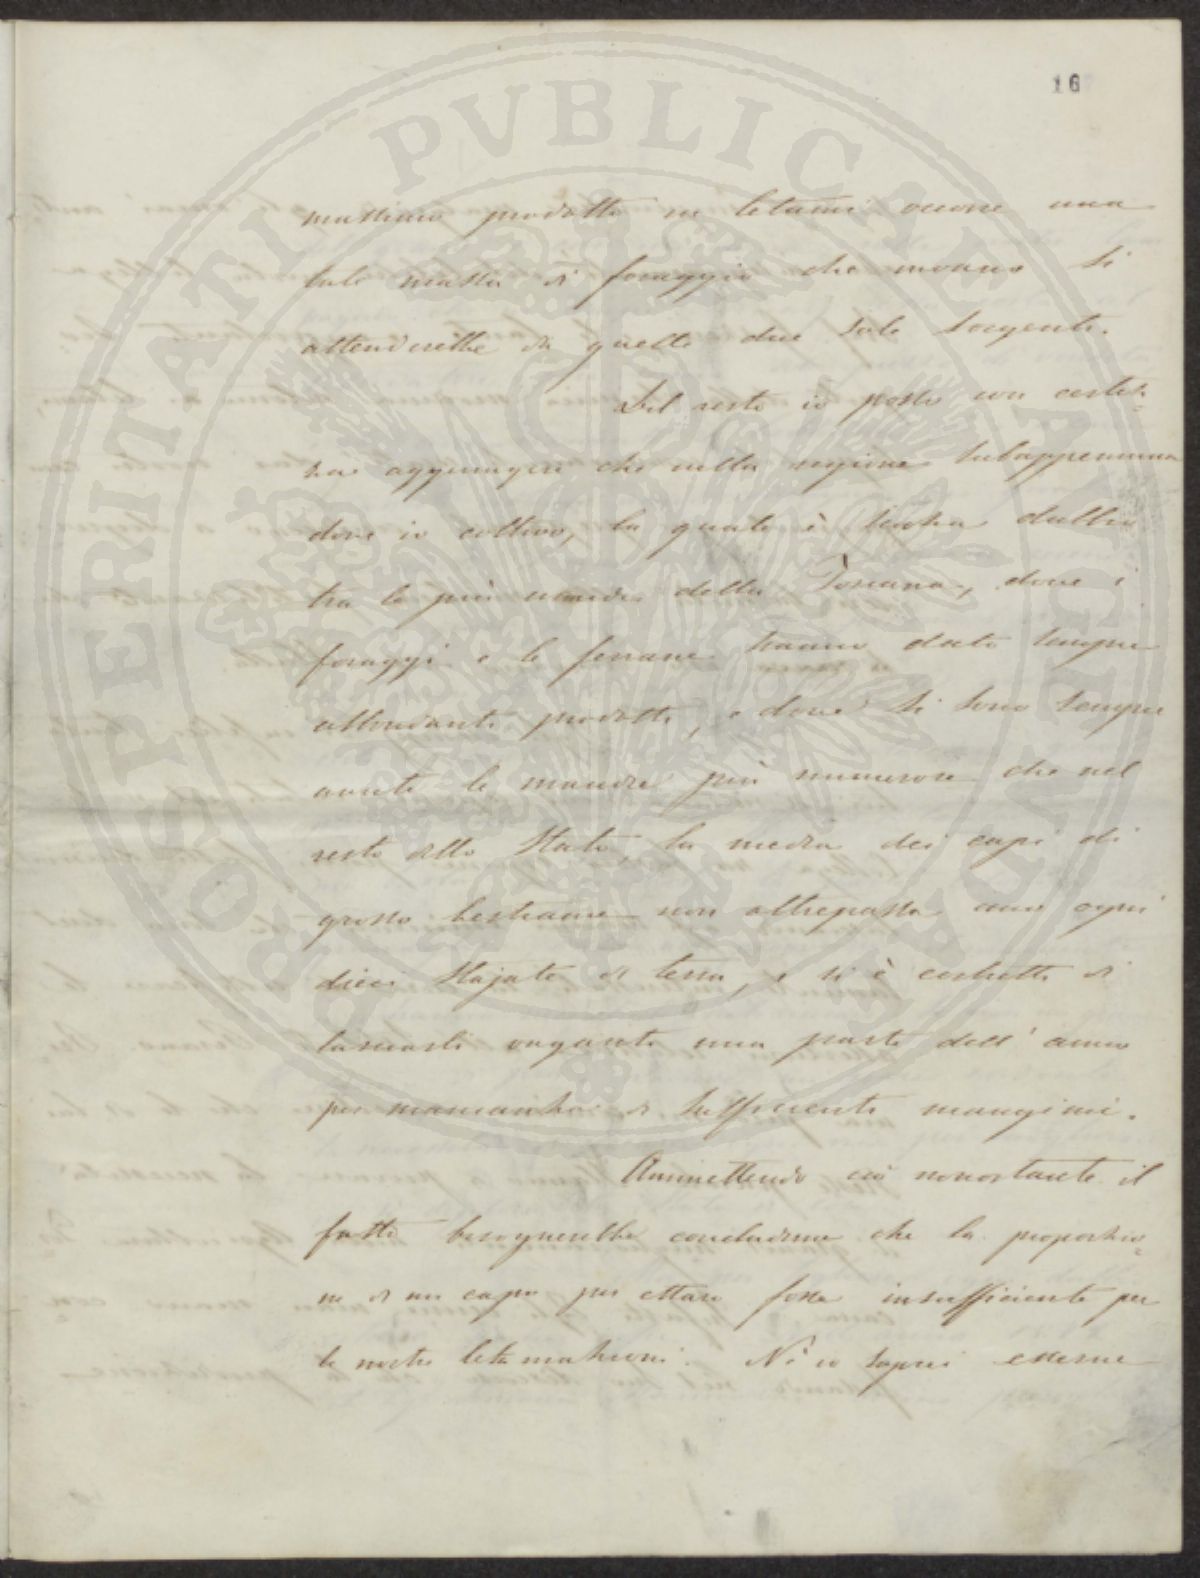 16
PROSPERITATI PUBLICAE AUGENDAE
massimo prodotto in letami occorre una
tale massa di foraggio che invano si
attenderebbe da quelle due sole sorgenti.
Del resto io posso con certez=
za aggiungere che nella regione subappennina
dove io coltivo, la quale è senza dubbio
tra le più umide della Toscana, dove i
foraggi e le ferrane hanno dato sempre
abbondanti prodotti, e dove si sono sempre
avute le mandre più numerose che nel
resto dello Stato, la media dei capi di
grosso bestiame non oltrepassa uno ogni
dieci stajate di terra, e si è costretti di
lasciarli vagante una parte dell'anno
per mancanza di sufficienti mangimi.
Ammettendo ciò nonostante il
fatto bisognerebbe concluderne che la proporzio=
ne di un capo per ettaro fosse insufficiente per
le nostre letamazioni. Nè io saprei esserne